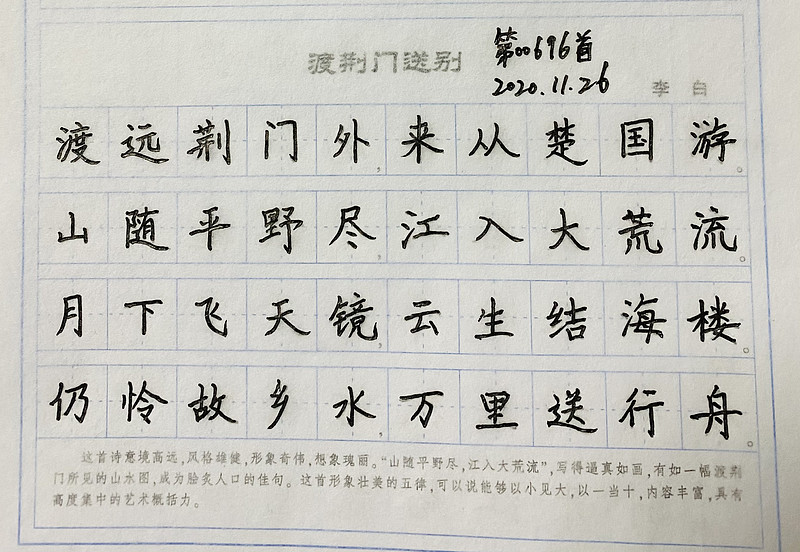 渡荆门送别
第00696首
2020.11.26
李白
渡远荆门外,来从楚国游。
山随平野尽,江入大荒流。
月下飞天镜,云生结海楼。
仍怜故乡水,万里送行舟。
这首诗意境高远,风格雄健,形象奇伟,想象瑰丽。“山随平野尽,江入大荒流”,写得逼真如画,有如一幅渡荆
门所见的山水图,成为脍炙人口的佳句。这首形象壮美的五律,可以说能够以小见大,以一当十,内容丰富,具有
高度集中的艺术概括力。